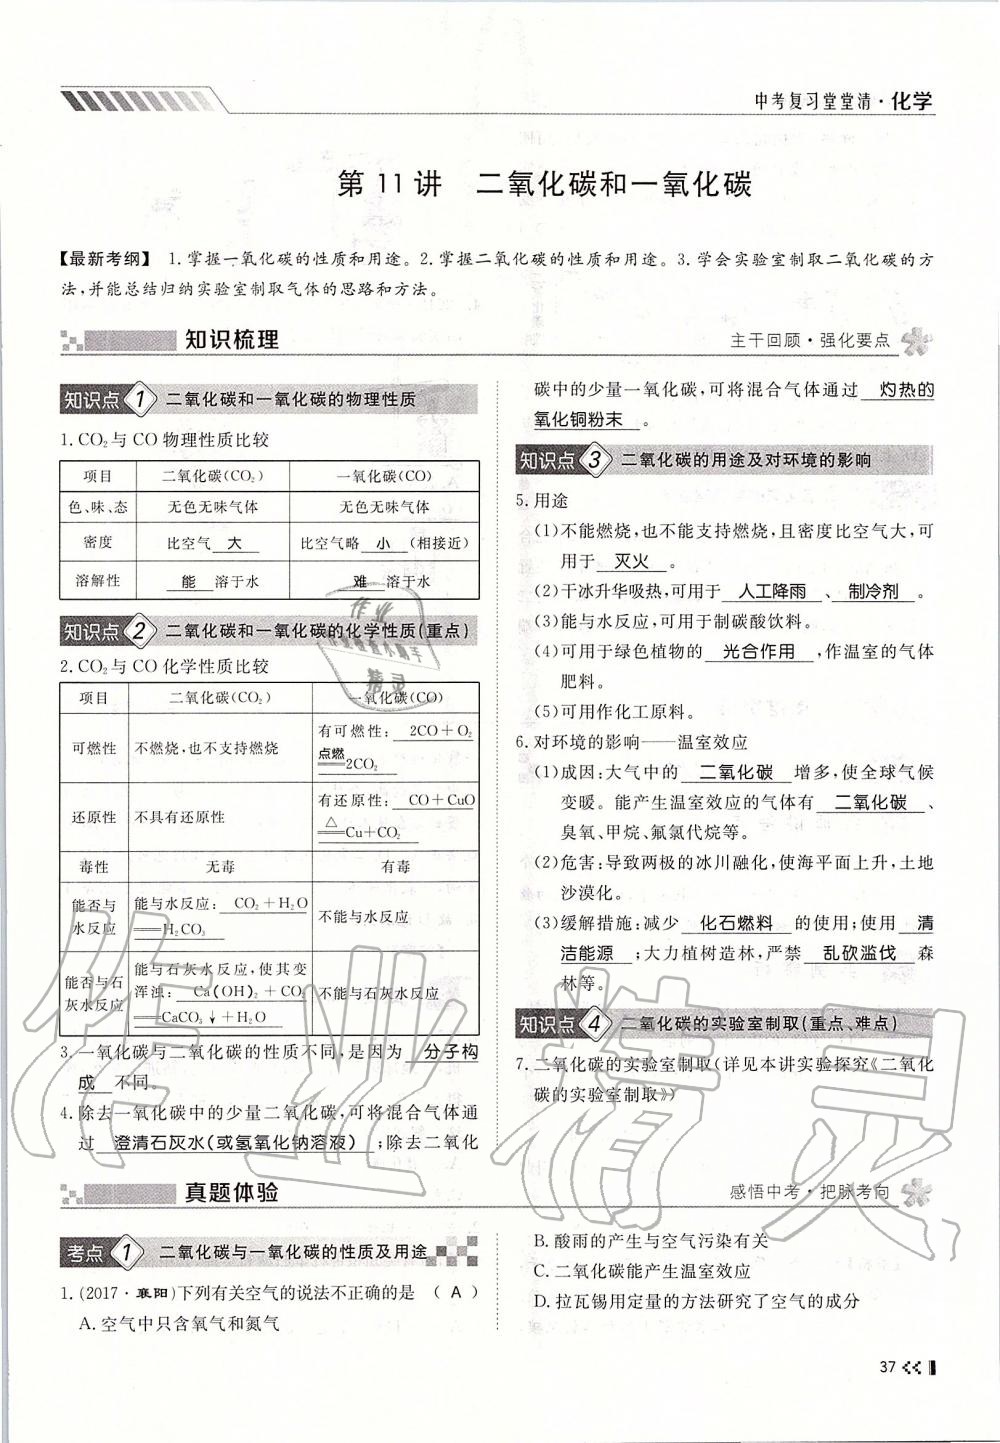 中考复习堂堂清·化学
第11讲 二氧化碳和一氧化碳
【最新考纲】 1.掌握一氧化碳的性质和用途。2.掌握二氧化碳的性质和用途。3.学会实验室制取二氧化碳的方
法,并能总结归纳实验室制取气体的思路和方法。
知识梳理
主干回顾·强化要点
知识点1 二氧化碳和一氧化碳的物理性质
1.CO₂与CO物理性质比较
项目 二氧化碳(CO₂) 一氧化碳(CO)
色、味、态 无色无味气体 无色无味气体
密度 比空气 大 比空气略 小 (相接近)
溶解性 能 溶于水 难 溶于水
知识点2 二氧化碳和一氧化碳的化学性质(重点)
2.CO₂与CO化学性质比较
项目 二氧化碳(CO₂) 一氧化碳(CO)
可燃性 不燃烧,也不支持燃烧 有可燃性: 2CO+O₂
点燃══2CO₂
还原性 不具有还原性 有还原性: CO+CuO
△══Cu+CO₂
毒性 无毒 有毒
能否与 能与水反应: CO₂+H₂O
水反应 ══H₂CO₃ 不能与水反应
能否与石 能与石灰水反应,使其变
灰水反应 浑浊: Ca(OH)₂+CO₂ 不能与石灰水反应
══CaCO₃↓+H₂O
3.一氧化碳与二氧化碳的性质不同,是因为 分子构
成 不同。
4.除去一氧化碳中的少量二氧化碳,可将混合气体通
过 澄清石灰水(或氢氧化钠溶液) ;除去二氧化
碳中的少量一氧化碳,可将混合气体通过 灼热的
氧化铜粉末 。
知识点3 二氧化碳的用途及对环境的影响
5.用途
(1)不能燃烧,也不能支持燃烧,且密度比空气大,可
用于 灭火 。
(2)干冰升华吸热,可用于 人工降雨 、 制冷剂 。
(3)能与水反应,可用于制碳酸饮料。
(4)可用于绿色植物的 光合作用 ,作温室的气体
肥料。
(5)可用作化工原料。
6.对环境的影响——温室效应
(1)成因:大气中的 二氧化碳 增多,使全球气候
变暖。能产生温室效应的气体有 二氧化碳 、
臭氧、甲烷、氟氯代烷等。
(2)危害:导致两极的冰川融化,使海平面上升,土地
沙漠化。
(3)缓解措施:减少 化石燃料 的使用;使用 清
洁能源 ;大力植树造林,严禁 乱砍滥伐 森
林等。
知识点4 二氧化碳的实验室制取(重点、难点)
7.二氧化碳的实验室制取(详见本讲实验探究《二氧化
碳的实验室制取》)
真题体验
感悟中考·把脉考向
考点1 二氧化碳与一氧化碳的性质及用途
1.(2017·襄阳)下列有关空气的说法不正确的是 ( A )
A.空气中只含氧气和氮气
B.酸雨的产生与空气污染有关
C.二氧化碳能产生温室效应
D.拉瓦锡用定量的方法研究了空气的成分
37
作业精灵